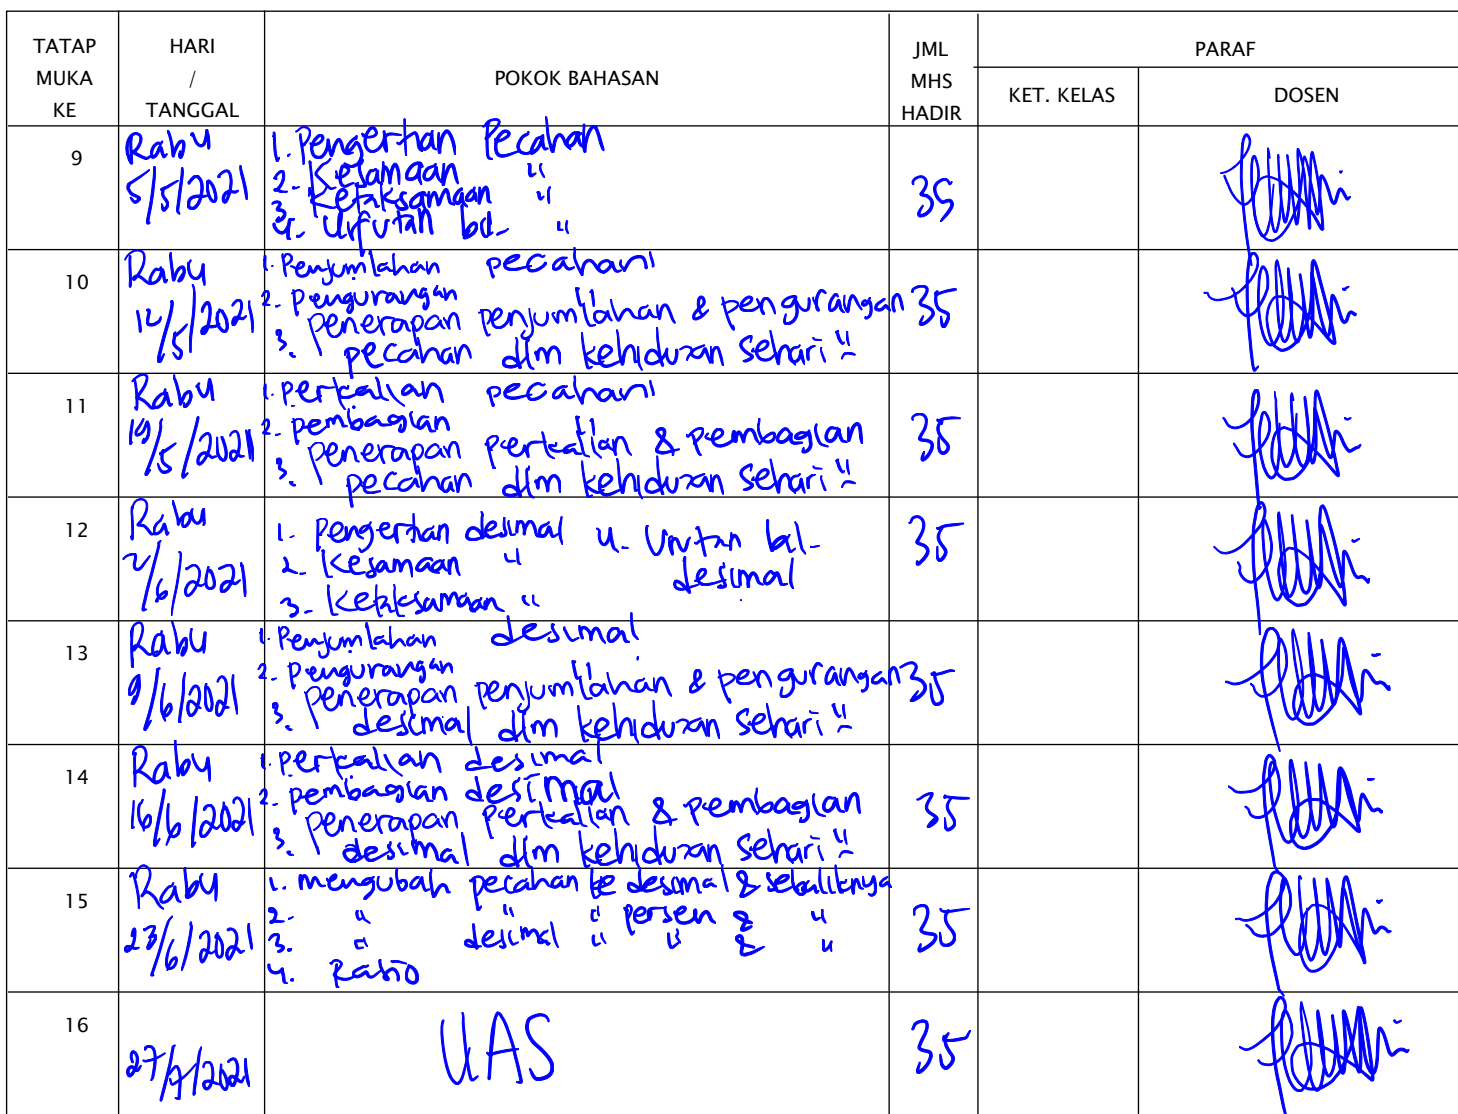 TATAP MUKA KE HARI / TANGGAL POKOK BAHASAN JML MHS HADIR PARAF
KET. KELAS DOSEN
9 Rabu 5/5/2021 1. Pengertian Pecahan 35
2. Kesamaan "
3. Ketaksamaan "
4. Urutan bil- "
10 Rabu 12/5/2021 1. Penjumlahan pecahan 35
2. Pengurangan "
3. penerapan penjumlahan & pengurangan
pecahan dlm kehidupan sehari"
11 Rabu 19/5/2021 1. perkalian pecahan 35
2. pembagian "
3. penerapan perkalian & pembagian
pecahan dlm kehidupan sehari"
12 Rabu 2/6/2021 1. Pengertian desimal 4. Urutan bil- 35
2. Kesamaan " desimal
3. Ketaksamaan "
13 Rabu 9/6/2021 1. Penjumlahan desimal 35
2. Pengurangan "
3. penerapan penjumlahan & pengurangan
desimal dlm kehidupan sehari"
14 Rabu 16/6/2021 1. perkalian desimal 35
2. pembagian desimal
3. penerapan perkalian & pembagian
desimal dlm kehidupan sehari"
15 Rabu 23/6/2021 1. mengubah pecahan ke desimal & sebaliknya 35
2. " " " persen & "
3. " desimal " " & "
4. Rasio
16 27/7/2021 UAS 35